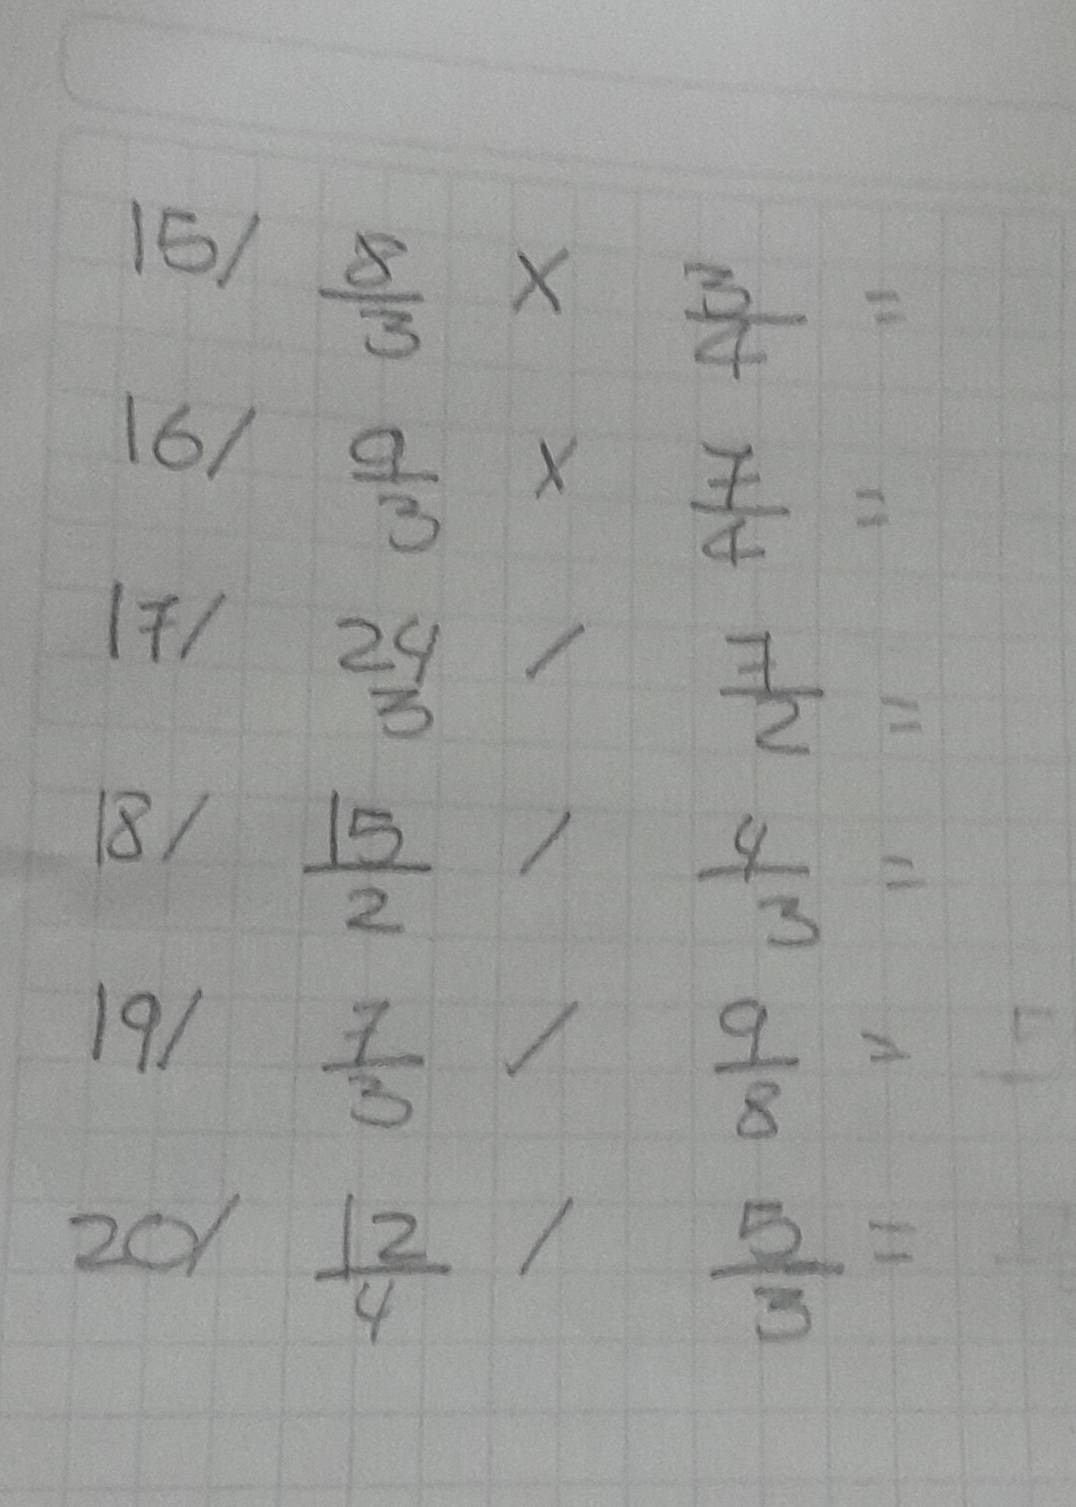 15/ 8/3 x 3/4 =
16/ 9/3 x 7/4 =
17/ 24/3 / 7/2 =
18/ 15/2 / 4/3 =
19/ 7/3 / 9/8 =
20/ 12/4 / 5/3 =